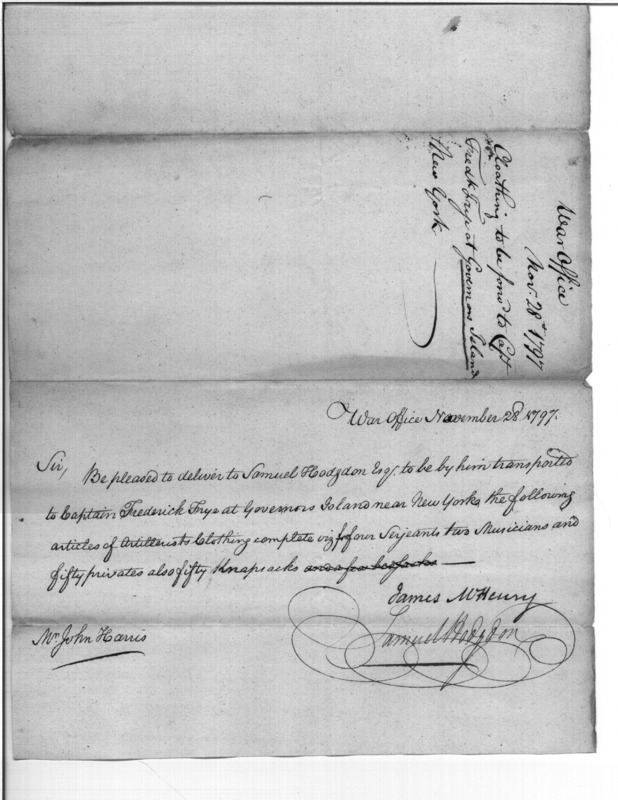 War Office
Nov. 28th 1797
Cloathing to be forw'd to Capt
Fred'k Frye at Governors Island
New York
War Office November 28. 1797.
Sir,
Be pleased to deliver to Samuel Hodgdon Esq. to be by him transported
to Captain Frederick Frye at Governors Island near New York, the following
articles of Artillerists Clothing complete viz for four Serjeants two Musicians and
fifty privates also fifty Knapsacks
James McHenry
Samuel Hodgdon
Mr. John Harris